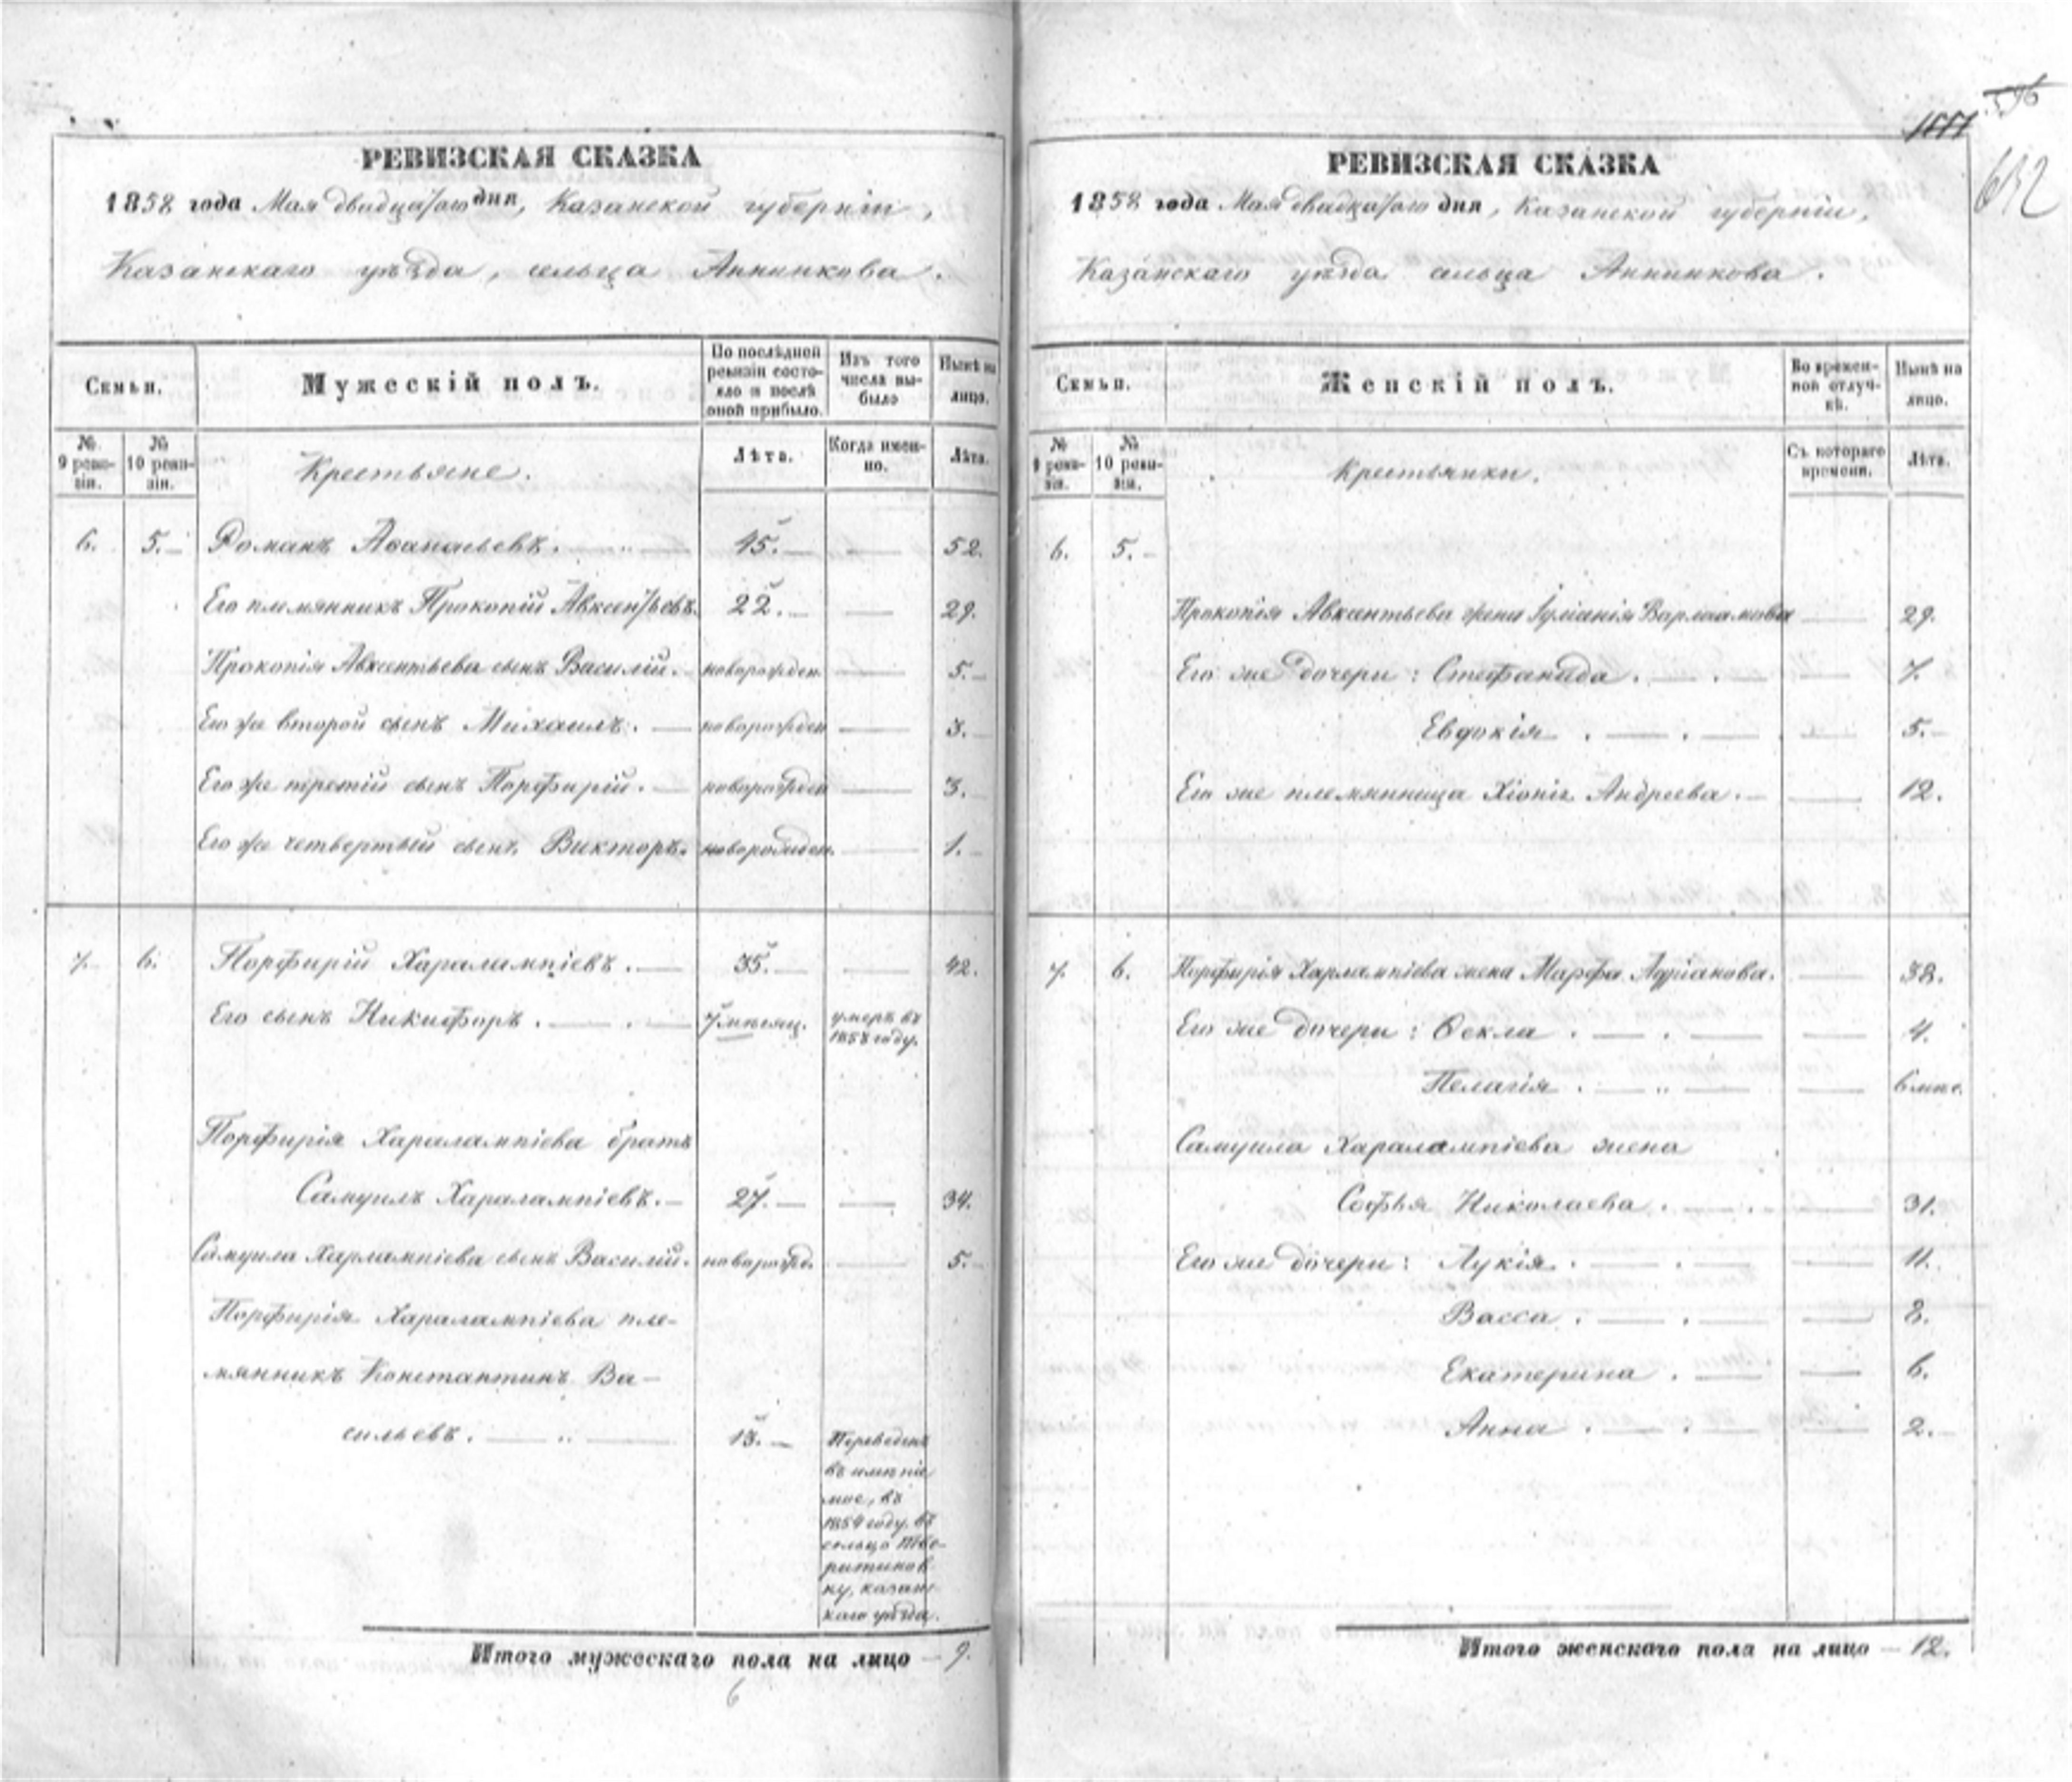 596
612
РЕВИЗСКАЯ СКАЗКА
1858 года Мая двадцатаго дня, Казанской губернiи,
Казанскаго уѣзда, сельца Аннинкова.
Семьи.
Мужескiй полъ.
По послѣдней ревизiи состояло и послѣ оной прибыло.
Изъ того числа выбыло
Нынѣ на лицо.
№ 9 ревизiи.
№ 10 ревизiи.
Крестьяне.
Лѣта.
Когда именно.
Лѣта.
6. 5. Романъ Аѳанасьевъ. 45. 52.
Его племянникъ Прокопiй Авксентьевъ. 22. 29.
Прокопiя Авксентьева сынъ Василiй. новорожден. 5.
Его же второй сынъ Михаилъ. новорожден 3.
Его же третiй сынъ Порфирiй. новорожден 3.
Его же четвертый сынъ Викторъ. новорожден. 1.
7. 6. Порфирiй Харалампiевъ. 35. 42.
Его сынъ Никифоръ. 7 мѣсяц. умеръ въ 1858 году.
Порфирiя Харалампiева братъ
Самуилъ Харалампiевъ. 27. 34.
Самуила Харлампiева сынъ Василiй. новорожд. 5.
Порфирiя Харалампiева пле-
мянникъ Константинъ Ва-
сильевъ. 13. Переведенъ
въ имѣнiе
мое, въ
1854 году. въ
сельцо
ку, казан-
скаго уѣзда.
Итого мужескаго пола на лицо 9.
6
РЕВИЗСКАЯ СКАЗКА
1858 года Мая двадцатаго дня, Казанской губернiи,
Казанскаго уѣзда сельца Аннинкова.
Семьи.
Женскiй полъ.
Во временной отлучкѣ.
Нынѣ на лицо.
№ 9 ревизiи.
№ 10 ревизiи.
Крестьянки.
Съ котораго времени.
Лѣта.
6. 5.
Прокопiя Авксентьева жена Iулiанiя Варлаамова 29.
Его же дочери: Стефанида. 7.
Евдокiя. 5.
Его же племянница Хiонiя Андреева. 12.
7. 6. Порфирiя Харлампiева жена Марфа Адрiанова. 38.
Его же дочери: Ѳекла. 4.
Пелагiя. 6 мѣс.
Самуила Харалампiева жена
Софья Николаева. 31.
Его же дочери: Лукiя. 11.
Васса. 8.
Екатерина. 6.
Анна. 2.
Итого женскаго пола на лицо 12.